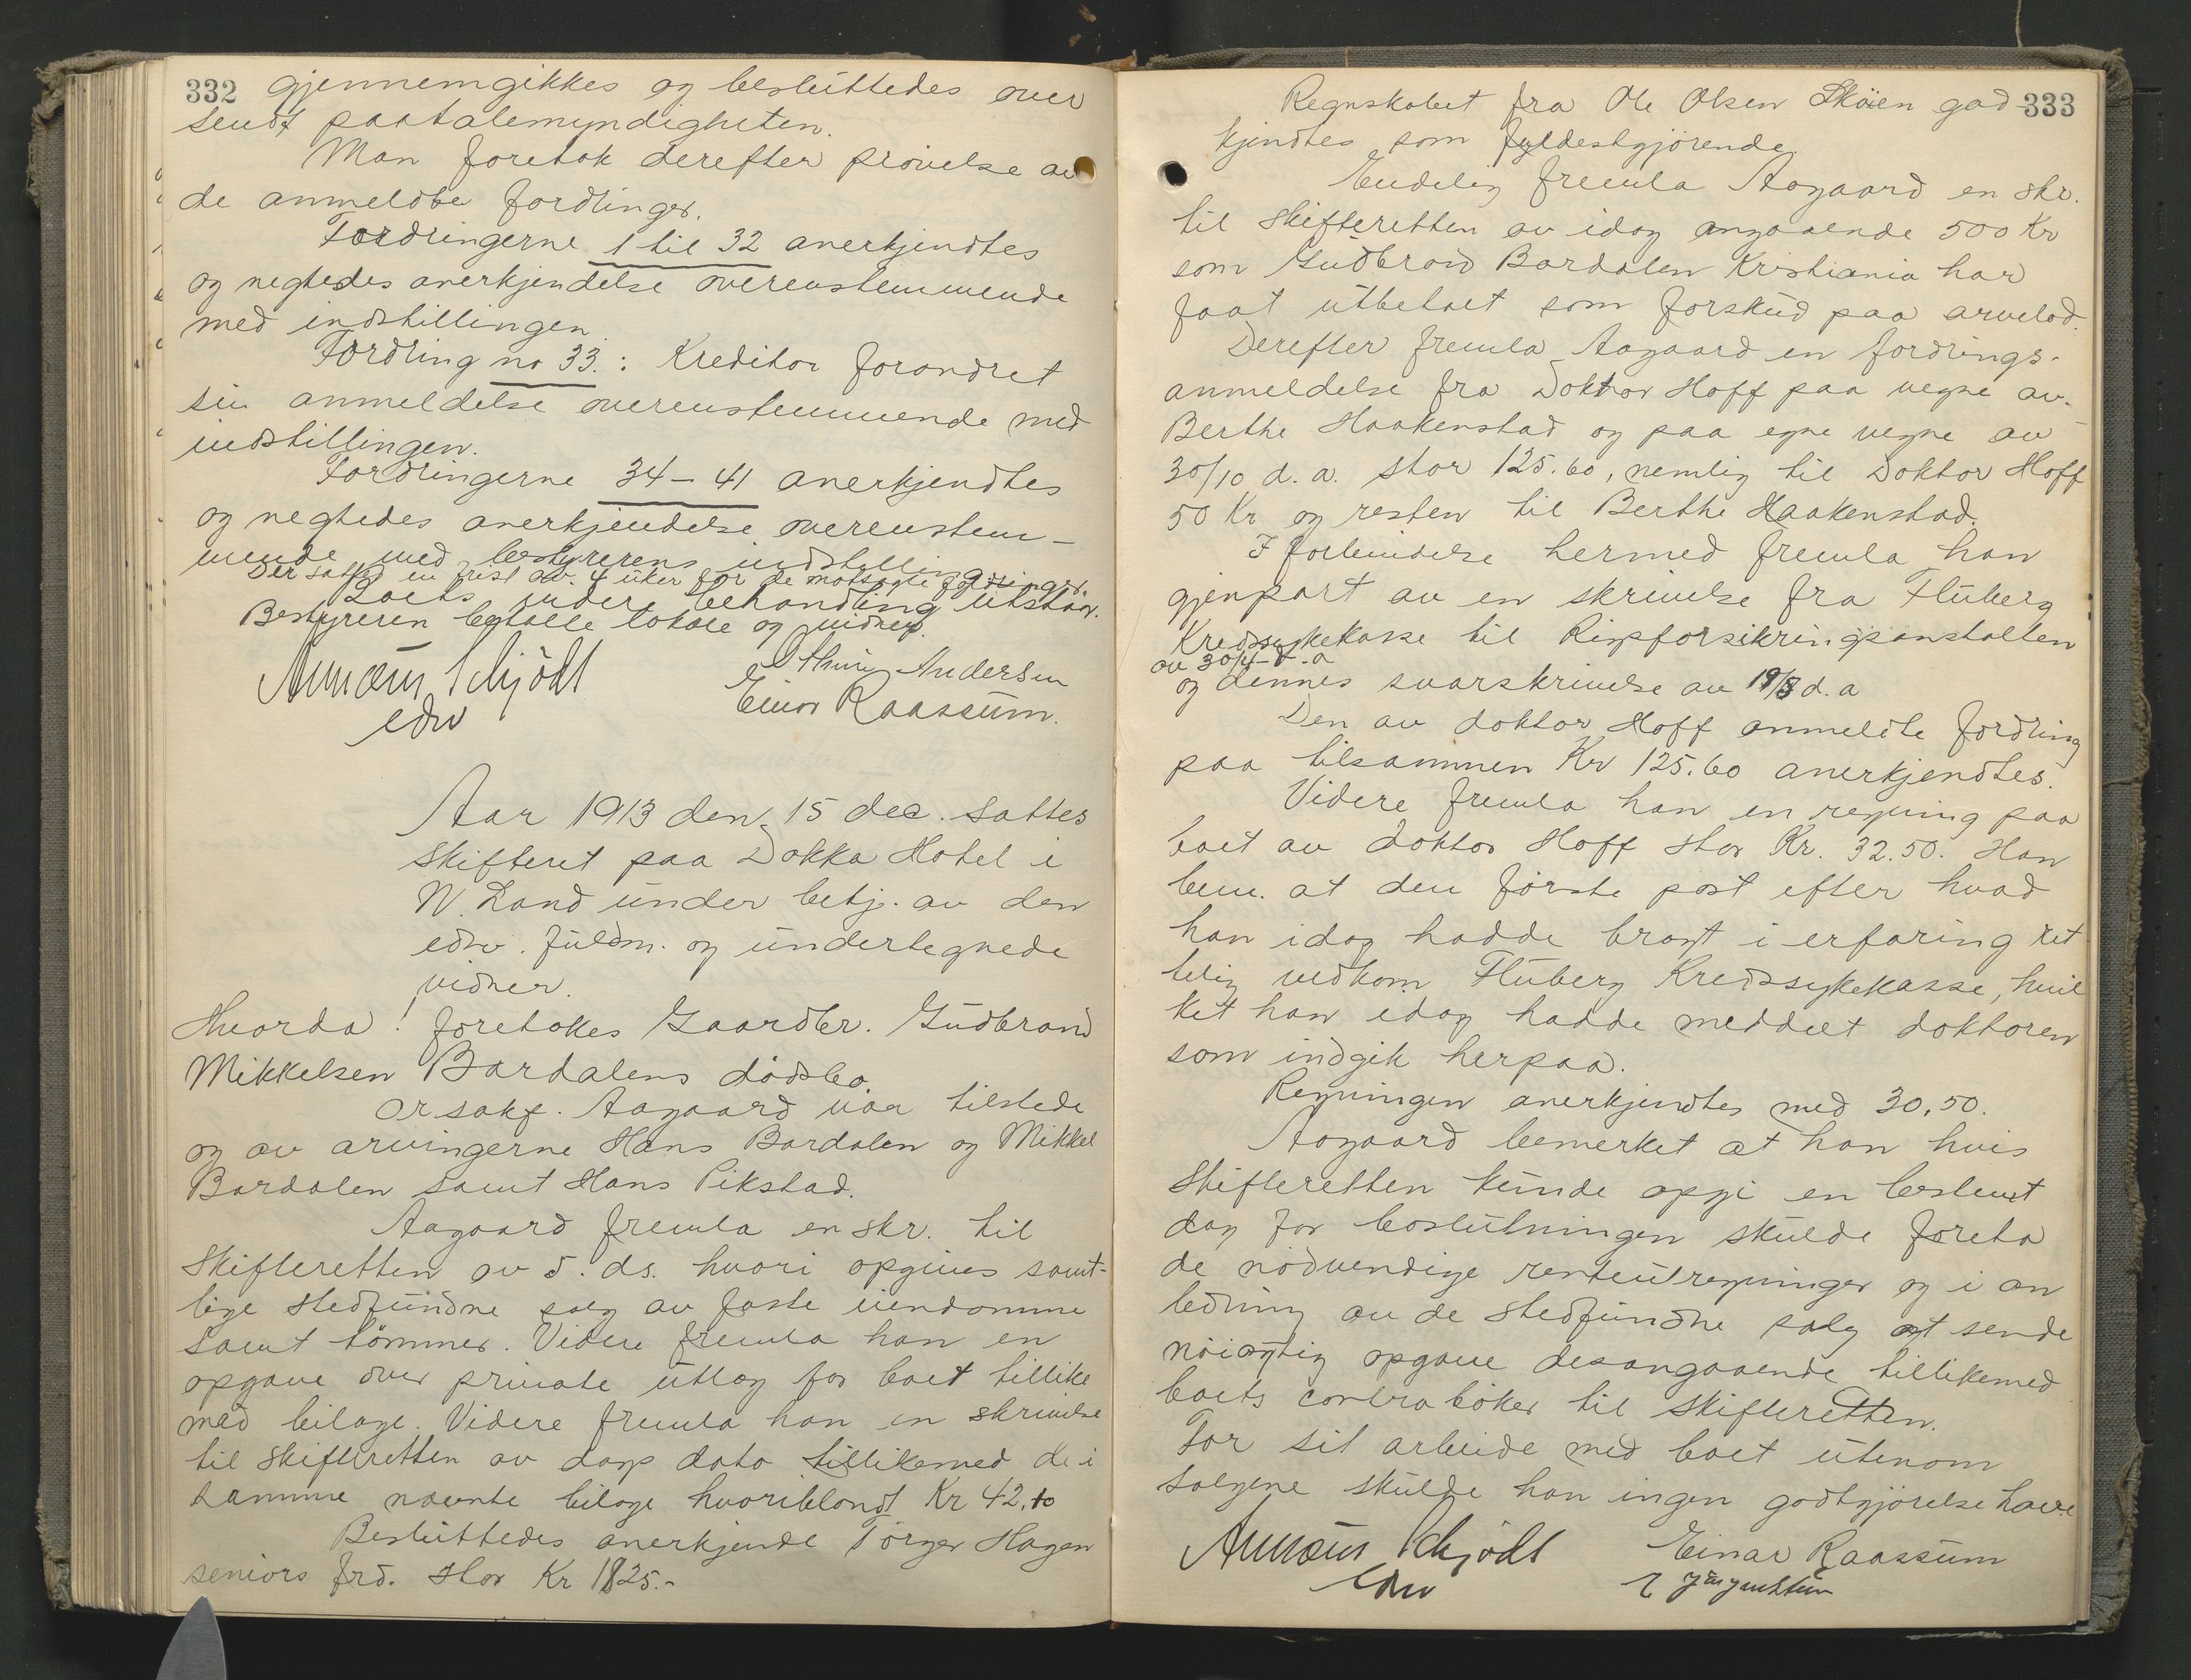 332 gjennemgikkes og besluttedes over
sendt paatalemyndigheten.
Man foretok derefter prövelse av
de anmeldte fordringer.
Fordringerne 1 til 32 anerkjendtes
og negtedes anerkjendelse overensstemmende
med indstillingen
Fordring no 33.: Kreditor forandret
sin anmeldelse overensstemmende med
indstillingen.
Fordringerne 34 – 41 anerkjendtes
og negtedes anerkjendelse overensstem-
mende med bestyrerens indstilling
Der sattes en frist av 4 uker for de motsagte fordringer.
Boets videre behandling utstaar.
Bestyreren betalte lokale og vidner.
Schjödt Andersen
edsv Einar Raassum.
Aar 1913 den 15 dec. sattes
skifteret paa Dokka Hotel i
N. Land under betj. av den
edsv. fuldm. og undertegnede
vidner.
Hvorda! foretokes Gaardbr. Gudbrand
Mikkelsen Bardalens dödsbo.
Orsakf. Aagaard var tilstede
og av arvingerne Hans Bardalen og Mikkel
Bardalen samt Hans Pikstad.
Aagaard fremla en skr. til
skifteretten av 5. ds. hvori opgives samt-
lige stedfundne salg av faste eiendomme
samt tömmer. Videre fremla han en
opgave over private utlæg for boet tillike
med bilage. Videre fremla han en skrivelse
til skifteretten av dags dato tillikemed de i
samme nævnte bilage hvoriblandt Kr 42,10
Besluttedes anerkjende Törger Hagen
seniors frd. stor Kr 1825.-
Regnskabet fra Ole Olsen Sköien god- 333
kjendtes som fyldestgjörende.
Endelig fremla Aagaard en skr.
til skifteretten av idag angaaende 500 Kr
som Gudbrand Bardalen Kristiania har
faat utbetalt som forskud paa arvelod.
Derefter fremla Aagaard en fordrings-
anmeldelse fra Doktor Hoff paa vegne av
Berthe Haakenstad og paa egne vegne av
30/10 d. a. stor 125.60, nemlig til Doktor Hoff
50 Kr og resten til Berthe Haakenstad.
I forbindelse hermed fremla han
gjenpart av en skrivelse fra Fluberg
Kredssykekasse til Riksforsikringsanstalten
av 30/4 d. a
og dennes svarskrivelse av 19/8 d. a
Den av doktor Hoff anmeldte fordring
paa tilsammen Kr 125.60 anerkjendtes.
Videre fremla han en regning paa
boet av doktor Hoff stor Kr. 32.50. Han
bem. at den förste post efter hvad
han idag hadde bragt i erfaring ret
telig vedkom Fluberg Kredssykekasse, hvil
ket han idag hadde meddelt doktoren
som indgik herpaa.
Regningen anerkjendtes med 30,50.
Aagaard bemerket at han hvis
skifteretten kunde opgi en bestemt
dag for boslutningen skulde foreta
de nödvendige renteutregninger og i an
ledning av de stedfundne salg at sende
nöiagtig opgave desangaaende tillikemed
boets contraböker til skifteretten.
For sit arbeide med boet utenom
salgene skulde han ingen godtgjörelse have
Schjödt Einar Raassum
edsv